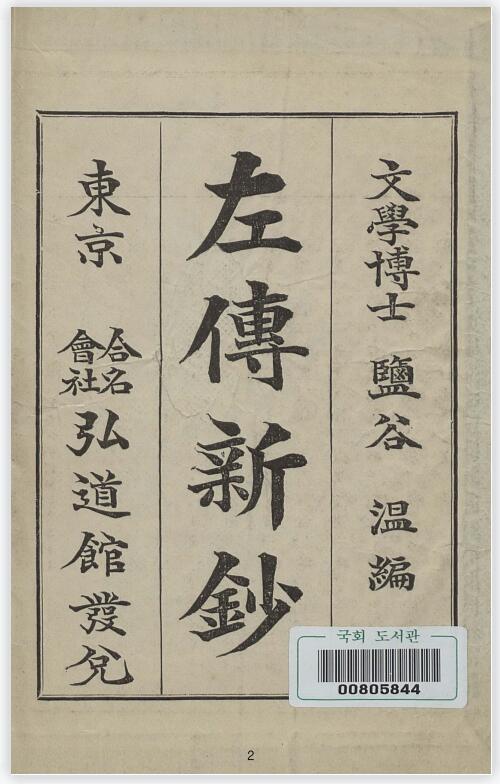 文學博士 鹽谷 温編
左傳新鈔
東京 合名會社 弘道館發兌
국회 도서관
00805844
2